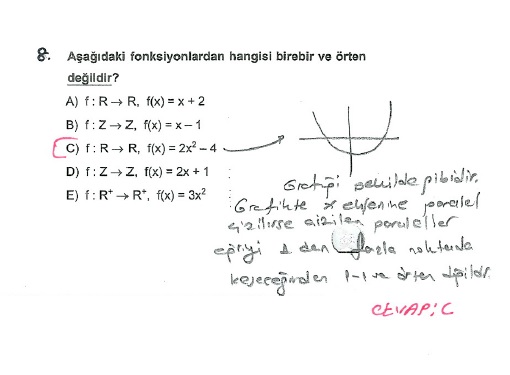 8. Aşağıdaki fonksiyonlardan hangisi birebir ve örten
değildir?
A) f : R → R, f(x) = x + 2
B) f : Z → Z, f(x) = x – 1
C) f : R → R, f(x) = 2x² – 4
D) f : Z → Z, f(x) = 2x + 1
E) f : R⁺ → R⁺, f(x) = 3x²
Grafiği şekilde gibidir.
Grafikte x eksenine paralel
çizilirse çizilen paraleller
eğriyi 1 den fazla noktada
keseceğinden 1-1 ve örten değildir.
CEVAP: C